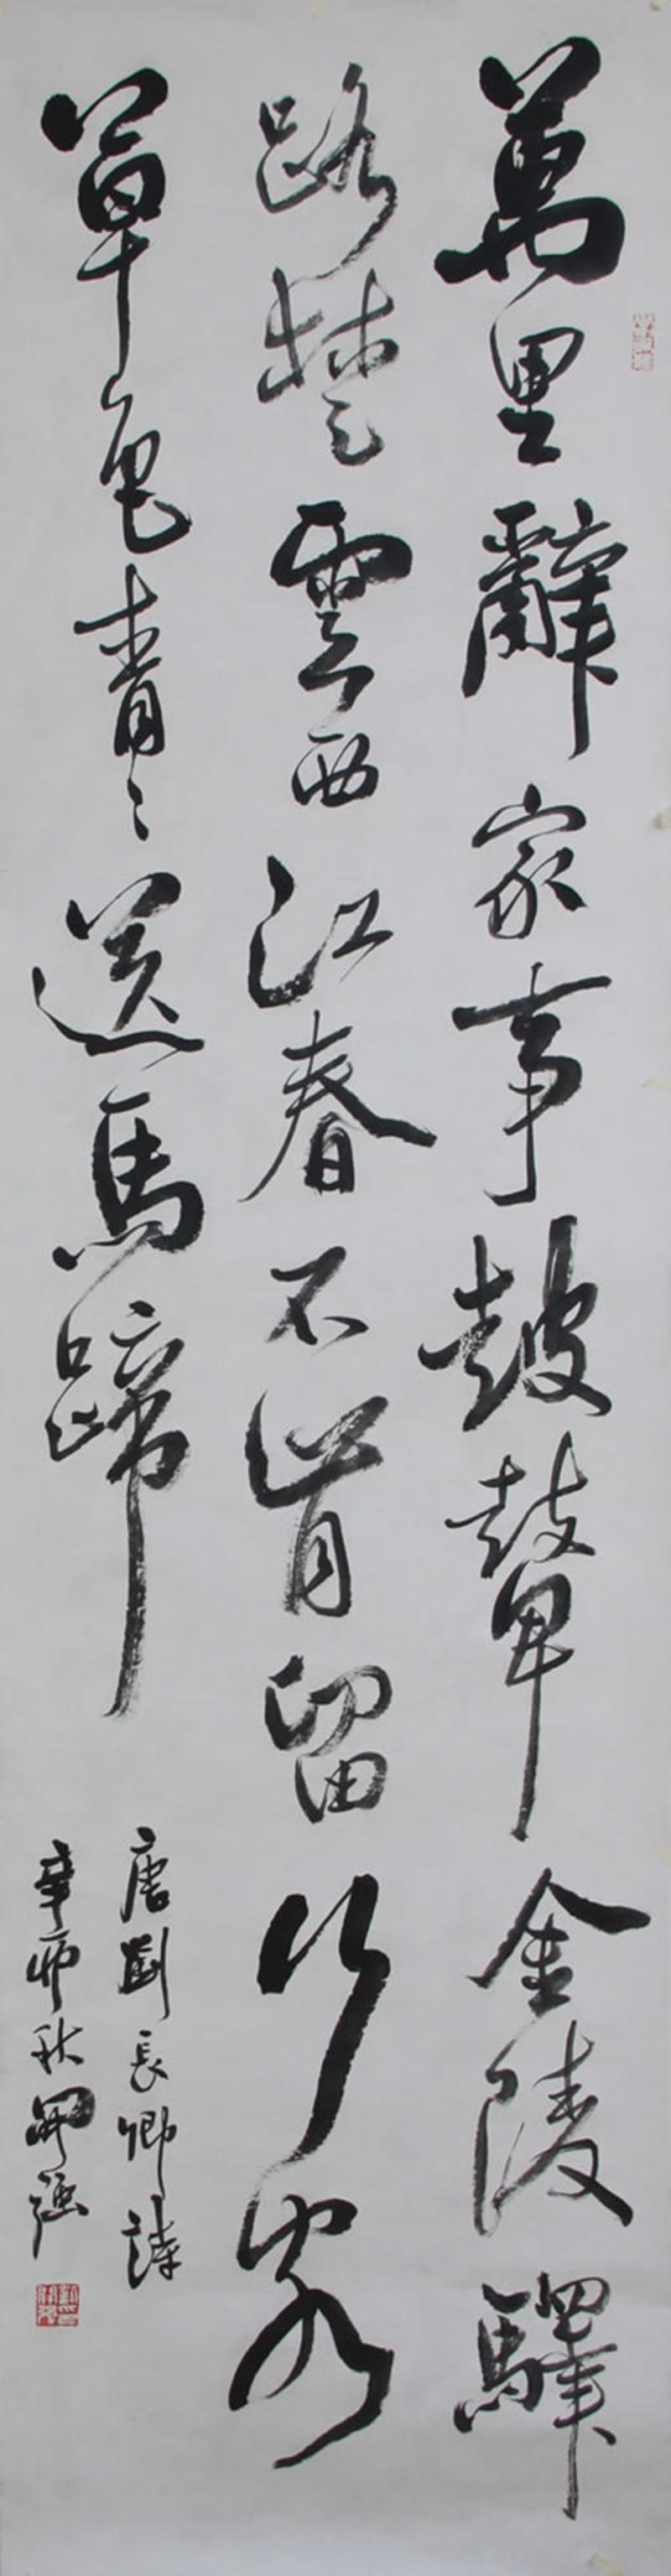 萬里辭家事鼓鼙金陵驛
路楚雲西江春不肯留行客
草色青〻送馬蹄
唐劉長卿詩
辛卯秋開強